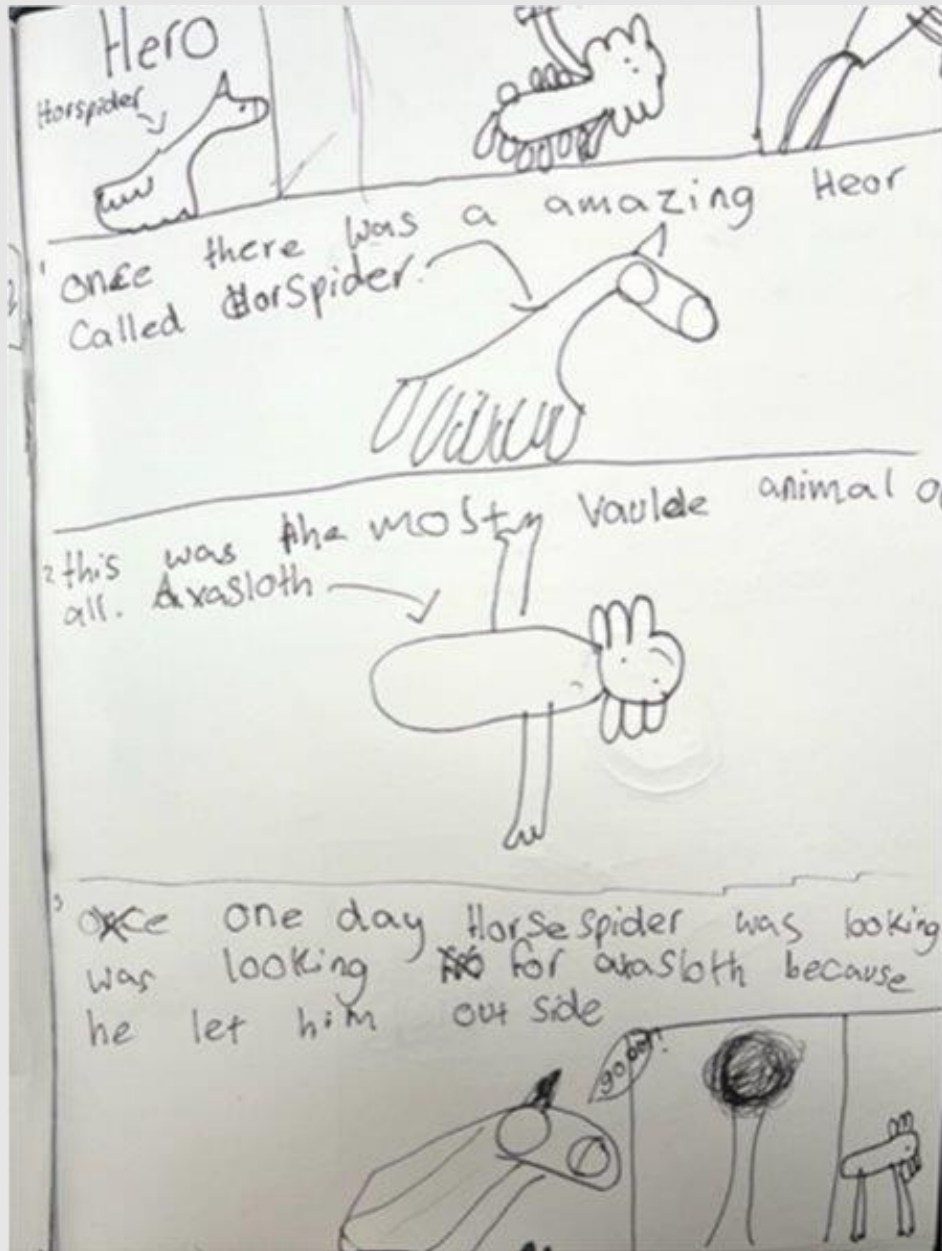 Hero
Horspider
1 once there was a amazing Heor
Called Horspider.
2 this was the most Vaulde animal
all. Axasloth
3 one day Horsespider was looking
was looking for axasloth because
he let him out side
go